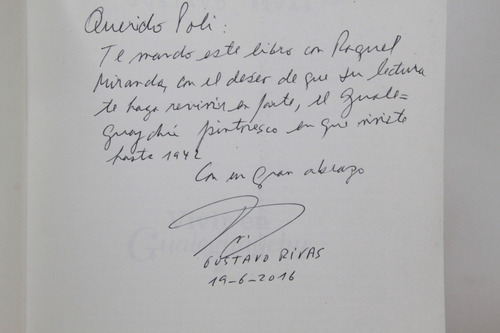 Querido Poli:
Te mando este libro con Raquel
Miranda, con el deseo de que su lectura
te haga revivir en parte, el Guale=
guaychú pintoresco en que viviste
hasta 1942
Con un gran abrazo
GUSTAVO RIVAS
19-6-2016